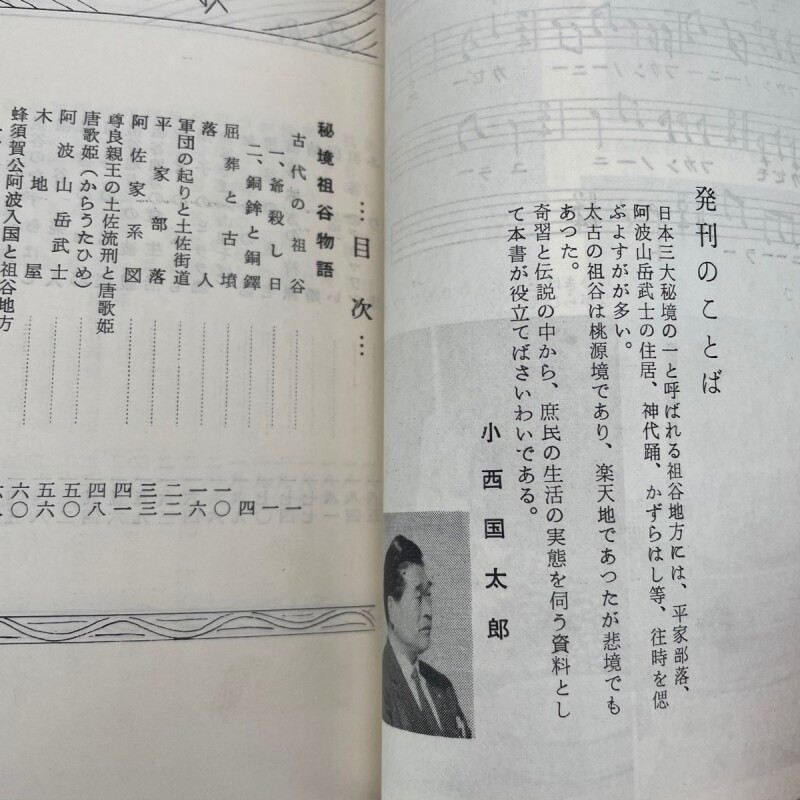 発刊のことば
日本三大秘境の一と呼ばれる祖谷地方には、平家部落、
阿波山岳武士の住居、神代踊、かずらはし等、往時を偲
ぶよすがが多い。
太古の祖谷は桃源境であり、楽天地であつたが悲境でも
あつた。
奇習と伝説の中から、庶民の生活の実態を伺う資料とし
て本書が役立てばさいわいである。
小西国太郎
…目次…
秘境祖谷物語
古代の祖谷……一
一、爺殺し日……一
二、銅鉾と銅鐸……四
屈葬と古墳……一〇
落人……一六
軍団の起りと土佐街道……二二
平家部落……三三
阿佐家系図……四一
尊良親王の土佐流刑と唐歌姫 四八
唐歌姫（からうたひめ）……五〇
阿波山岳武士……五六
木地屋……六〇
蜂須賀公阿波入国と祖谷地方